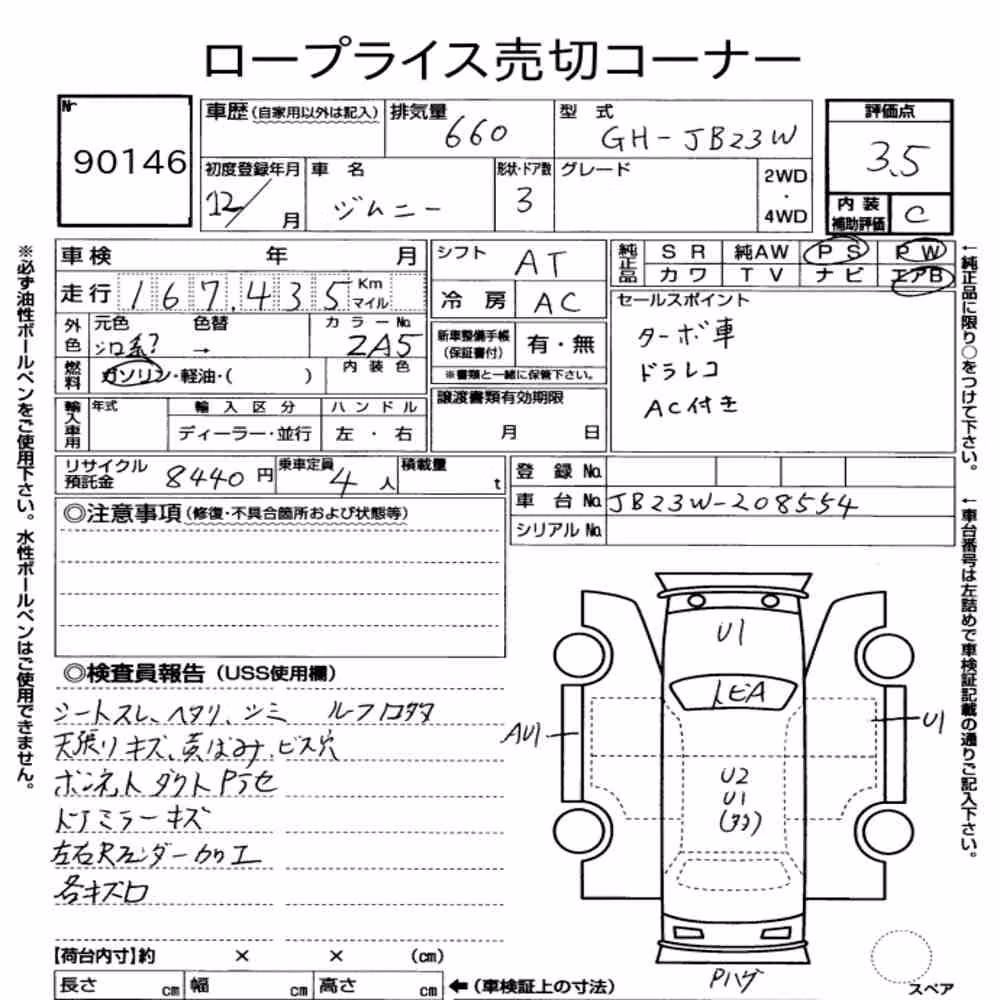 ロープライス売切コーナー
Nr
90146
車歴(自家用以外は記入)
排気量
660
型 式
GH-JB23W
評価点
3.5
初度登録年月
12/ 月
車 名
ジムニー
形状・ドア数
3
グレード
2WD
・
4WD
内 装
補助評価
C
車検 年 月
走行 167,435 Km マイル
外色
元色 色替 カラーNo.
シロ系? → ZA5
燃料
ガソリン・軽油・( )
内 装 色
輸入車用
年式
輸 入 区 分
ディーラー・並行
ハ ン ド ル
左 ・ 右
シフト AT
冷 房 AC
新車整備手帳
(保証書付)
有・無
※書類と一緒に保管下さい。
譲渡書類有効期限
月 日
純正品
SR 純AW PS PW
カワ TV ナビ エアB
セールスポイント
ターボ車
ドラレコ
AC付き
リサイクル
預託金
8440 円
乗車定員
4 人
積載量
t
登 録 No.
車 台 No. JB23W-208554
シリアル No.
◎注意事項(修復・不具合箇所および状態等)
◎検査員報告(USS使用欄)
シートスレ、ヘタリ、シミ
天張りキズ、黄ばみ、ビス穴
ボンネットダクトPラセ
ドアミラーキズ
各キズロ
U1
トビA
AU1
U1
U2
U1
Pハゲ
【荷台内寸】約 × × (cm)
長さ cm 幅 cm 高さ cm
←(車検証上の寸法)
スペア
※必ず油性ボールペンをご使用下さい。水性ボールペンはご使用できません。
←純正品に限り○をつけて下さい。
←車台番号は左詰めで車検証記載の通りご記入下さい。